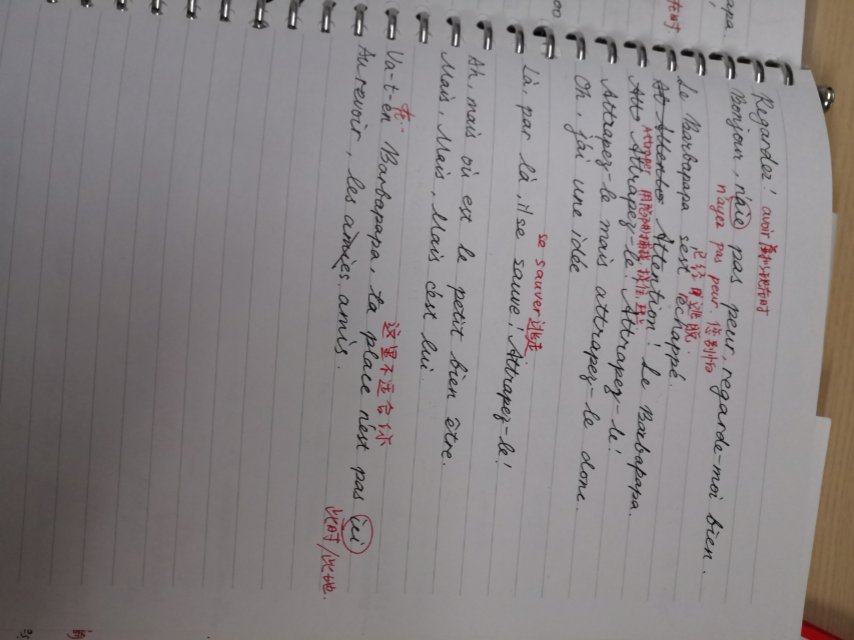 Regardez! avoir
Bonjour, n'aie pas peur, regarde-moi bien.
n'ayez pas peur. 您别怕
Le Barbapapa s'est échappé.
已经 逃脱.
Attention! Le Barbapapa.
Attrapez-le! Attrapez-le!
Attraper
Attrapez-le mais attrapez-le donc.
Oh, j'ai une idée
se sauver 逃走.
Là, par là, il se sauve! Attrapez-le!
Ah, mais où est le petit bien être.
Mais, Mais, Mais c'est lui.
这里不适合你
Va-t-en Barbapapa, ta place n'est pas ici
此时/此地.
Au revoir, les amies amis.